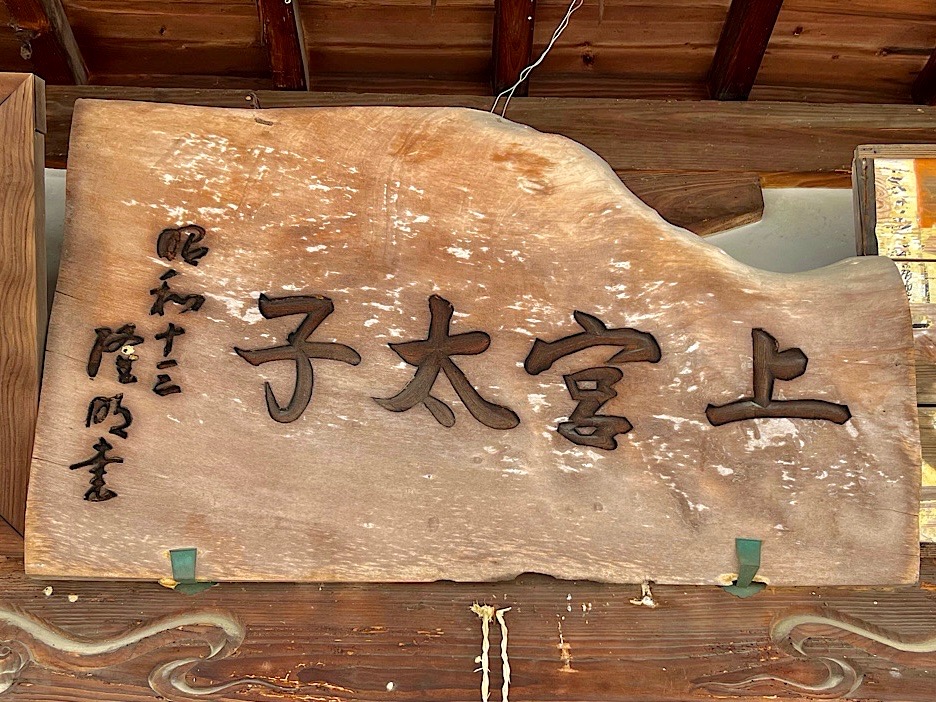 上宮太子
昭和十二
隆明書